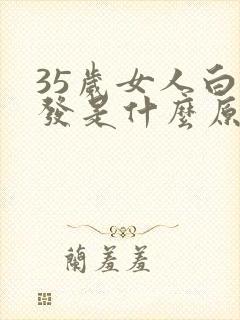 35歲女人白
發是什麼原
蘭羞羞